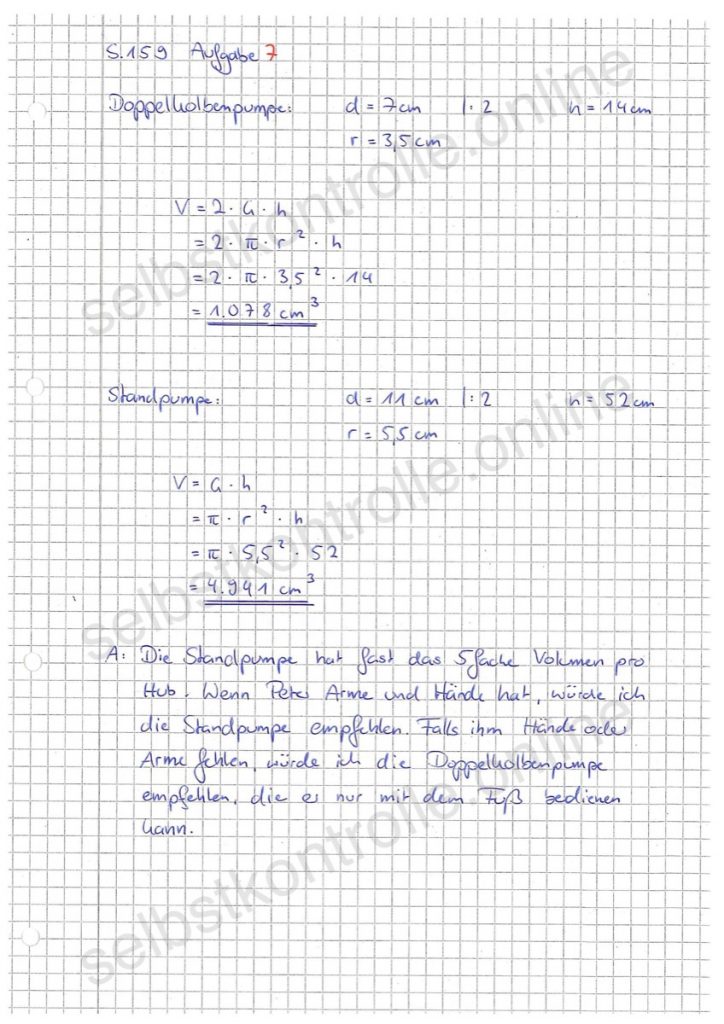 S.159 Aufgabe 7
Doppelkolbenpumpe: d = 7cm |:2 h = 14cm
r = 3,5cm
V = 2 · G · h
= 2 · π · r² · h
= 2 · π · 3,5² · 14
= 1.078 cm³
Standpumpe: d = 11cm |:2 h = 52cm
r = 5,5cm
V = G · h
= π · r² · h
= π · 5,5² · 52
= 4.941 cm³
A: Die Standpumpe hat fast das 5fache Volumen pro
Hub. Wenn Peter Arme und Hände hat, würde ich
die Standpumpe empfehlen. Falls ihm Hände oder
Arme fehlen, würde ich die Doppelkolbenpumpe
empfehlen, die er nur mit dem Fuß bedienen
kann.
selbstkontrolle.online
selbstkontrolle.online
selbstkontrolle.online